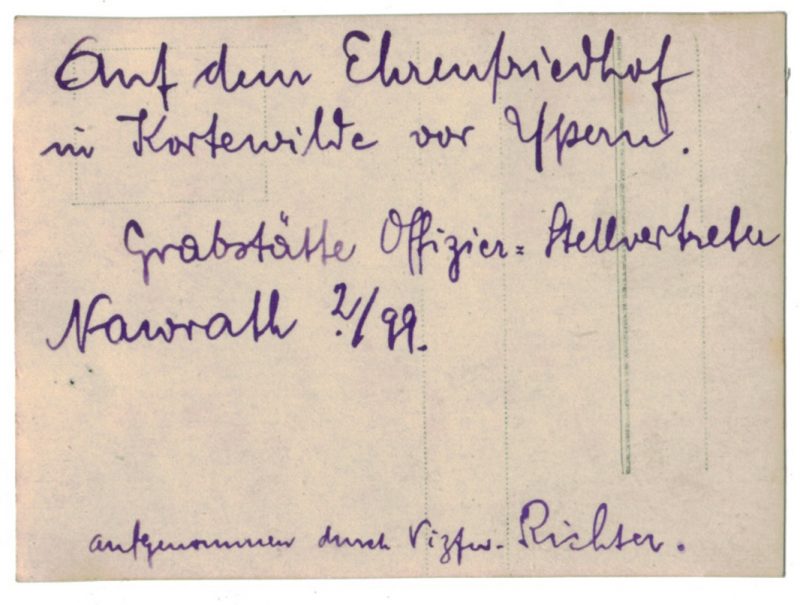 Auf dem Ehrenfriedhof
in Kortewilde vor Ypern.
Grabstätte Offizier= Stellvertreter
Nawrath 2./99.
aufgenommen durch Vizfw. Richter.